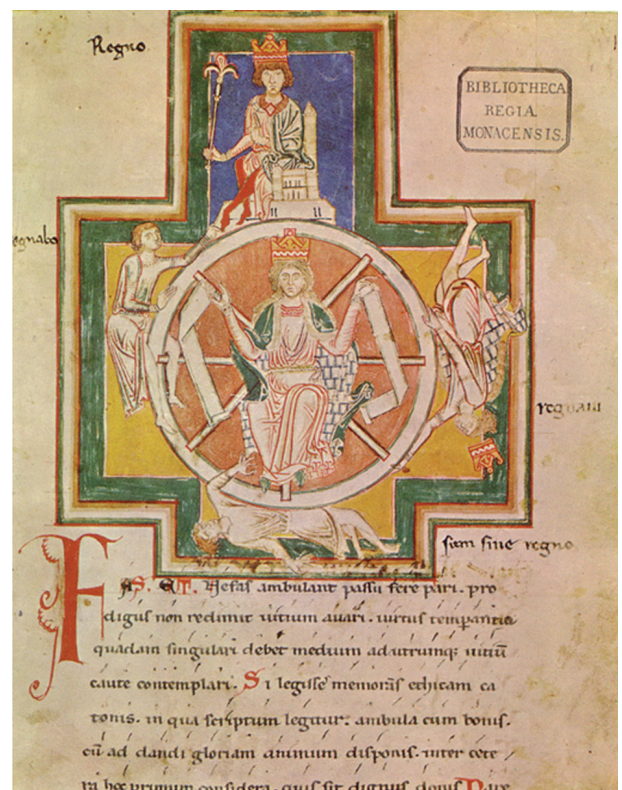 Regno
BIBLIOTHECA
REGIA
MONACENSIS.
egnabo
regnaui
sum sine regno
FAS. ET. Nefas ambulant passu fere pari. pro
digus non redimit uitium auari. uirtus temperantia
quadam singulari debet medium adutrumq; uitiũ
caute contemplari. Si legisse memoras ethicam ca
tonis. in qua scriptum legitur. ambula cum bonis.
cũ ad dandi gloriam animum disponis. inter cete
ra hoc primum considera. quis sit dignus donis